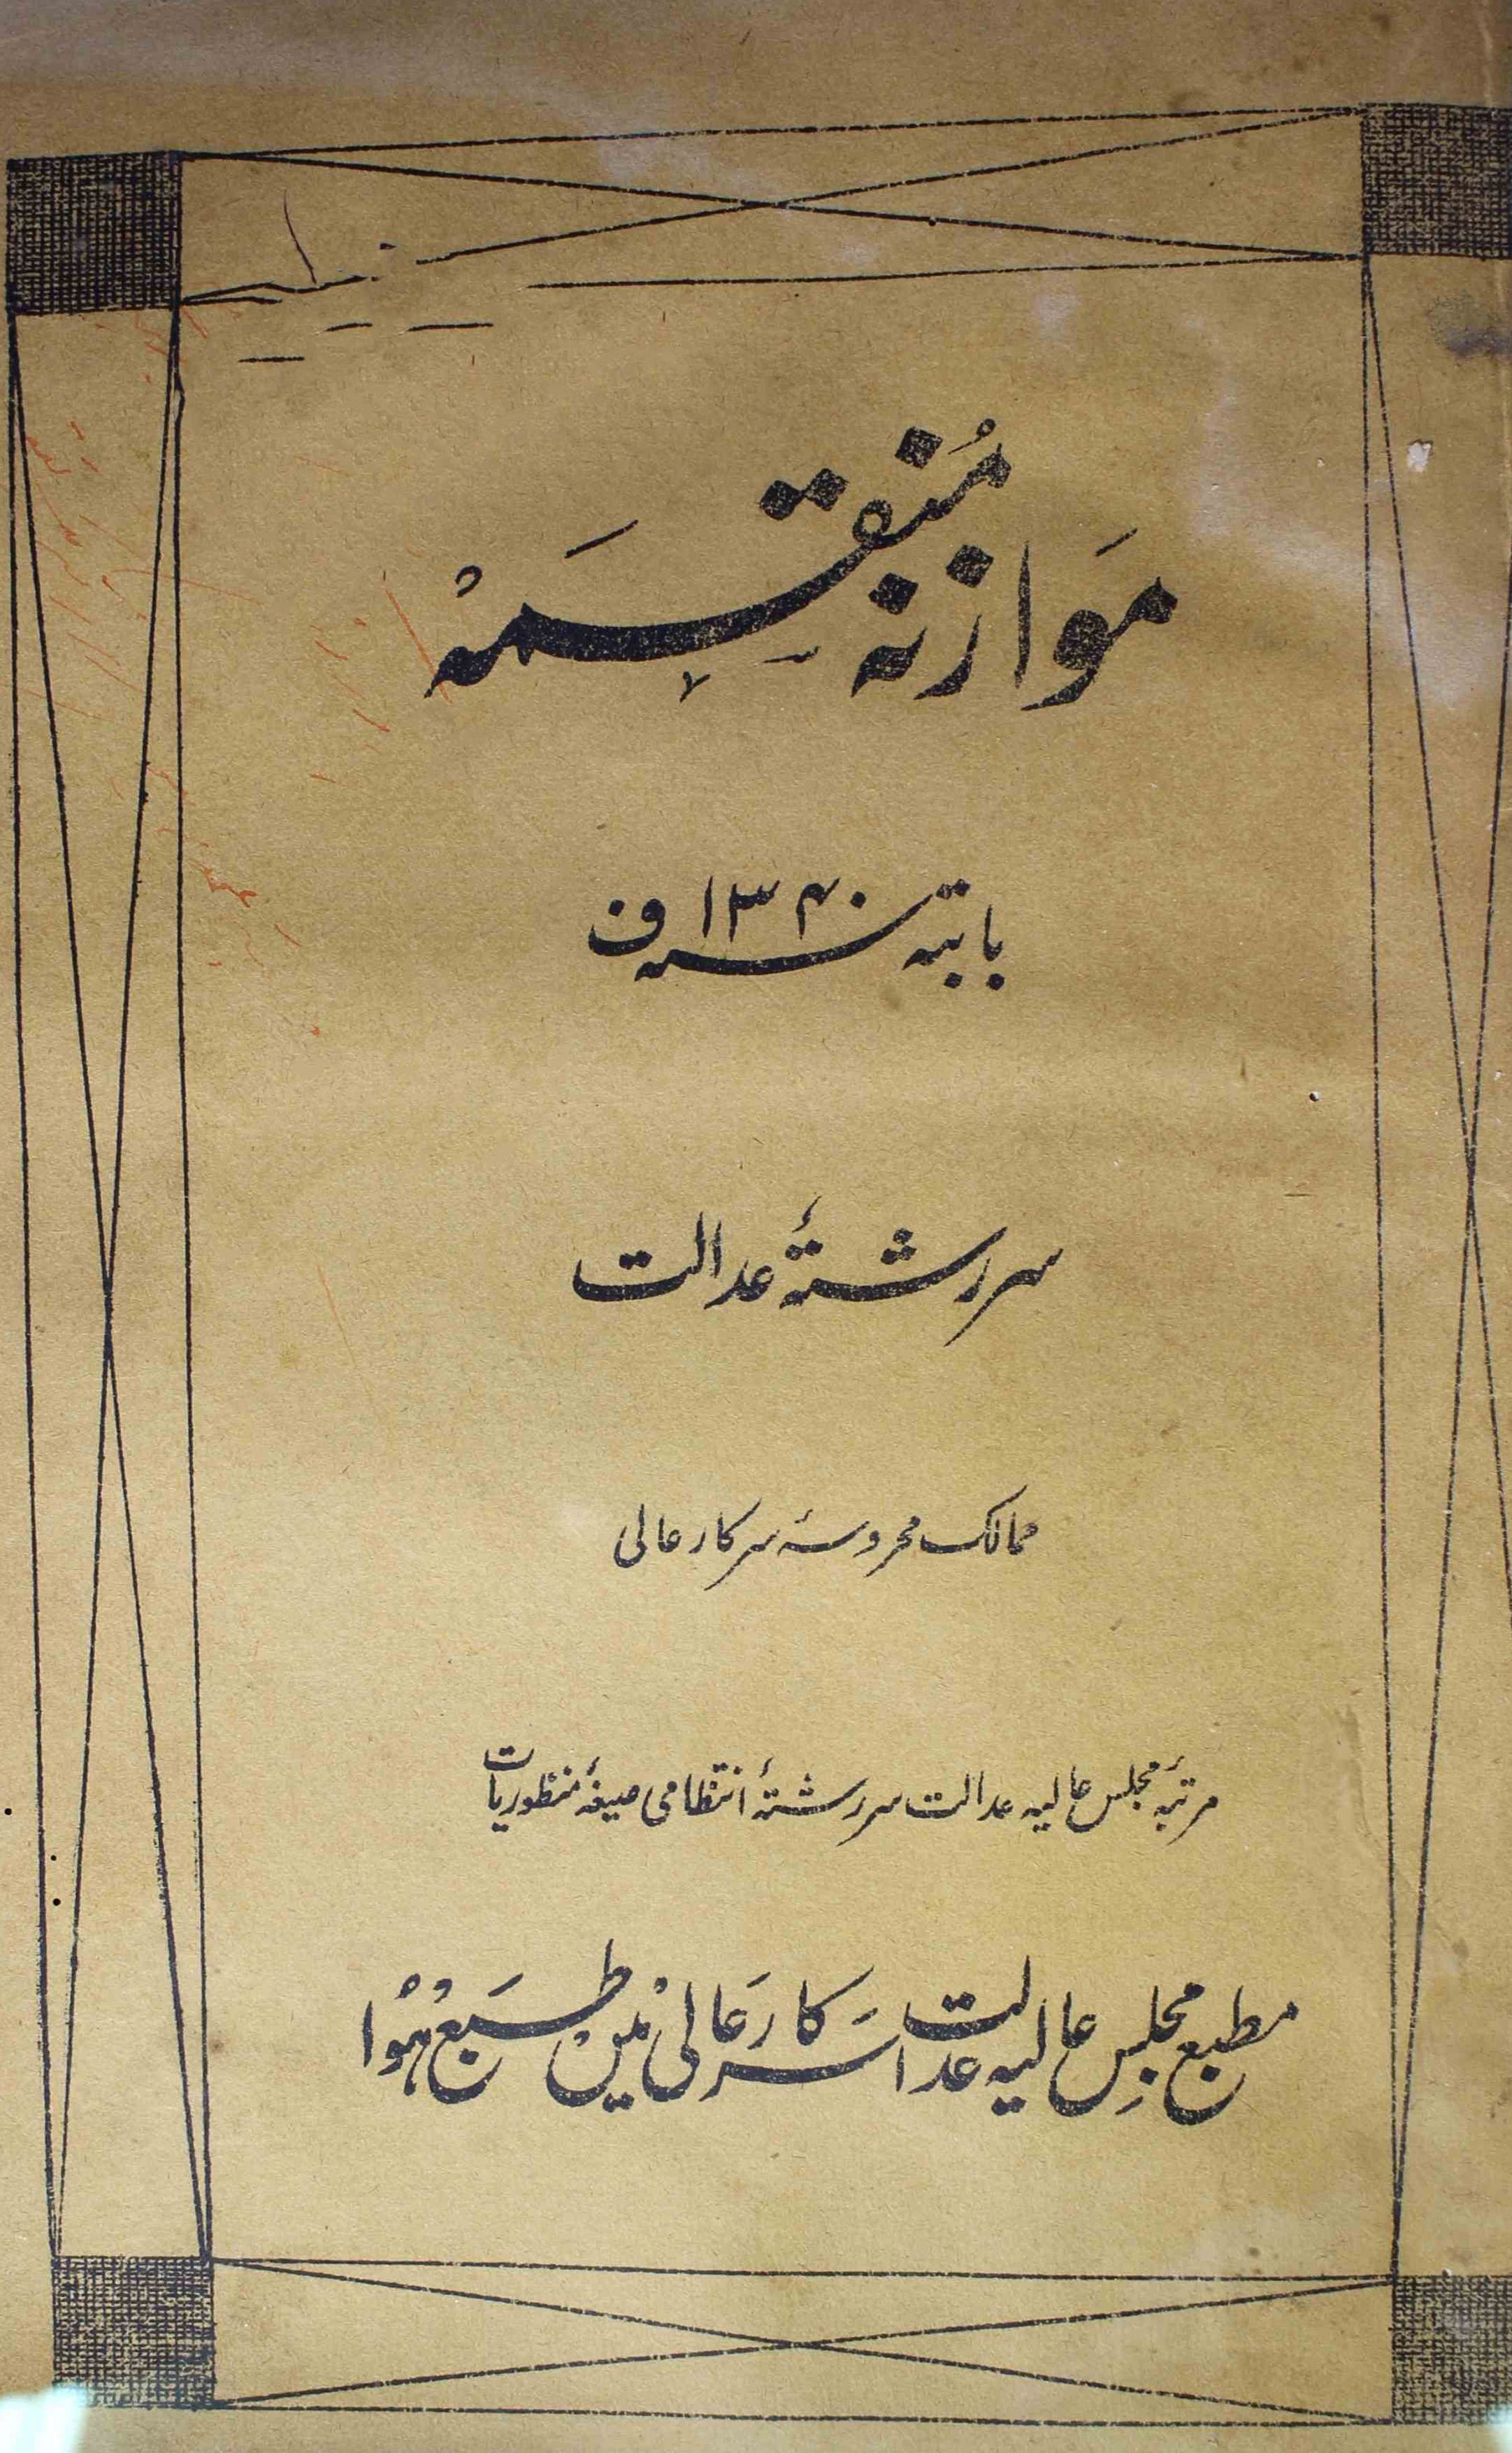 موازنہ مُنقسَمہ
بابتہ سنہ ۱۳۴۰ ف
سررشتۂ عدالت
ممالک محروسہ سرکار عالی
مرتبۂ مجلس عالیہ عدالت سررشتۂ انتظامی صیغۂ منظوریات
مطبع مجلسِ عالیہ عدالت سَرکار عَالی میں طَبع ہُوا